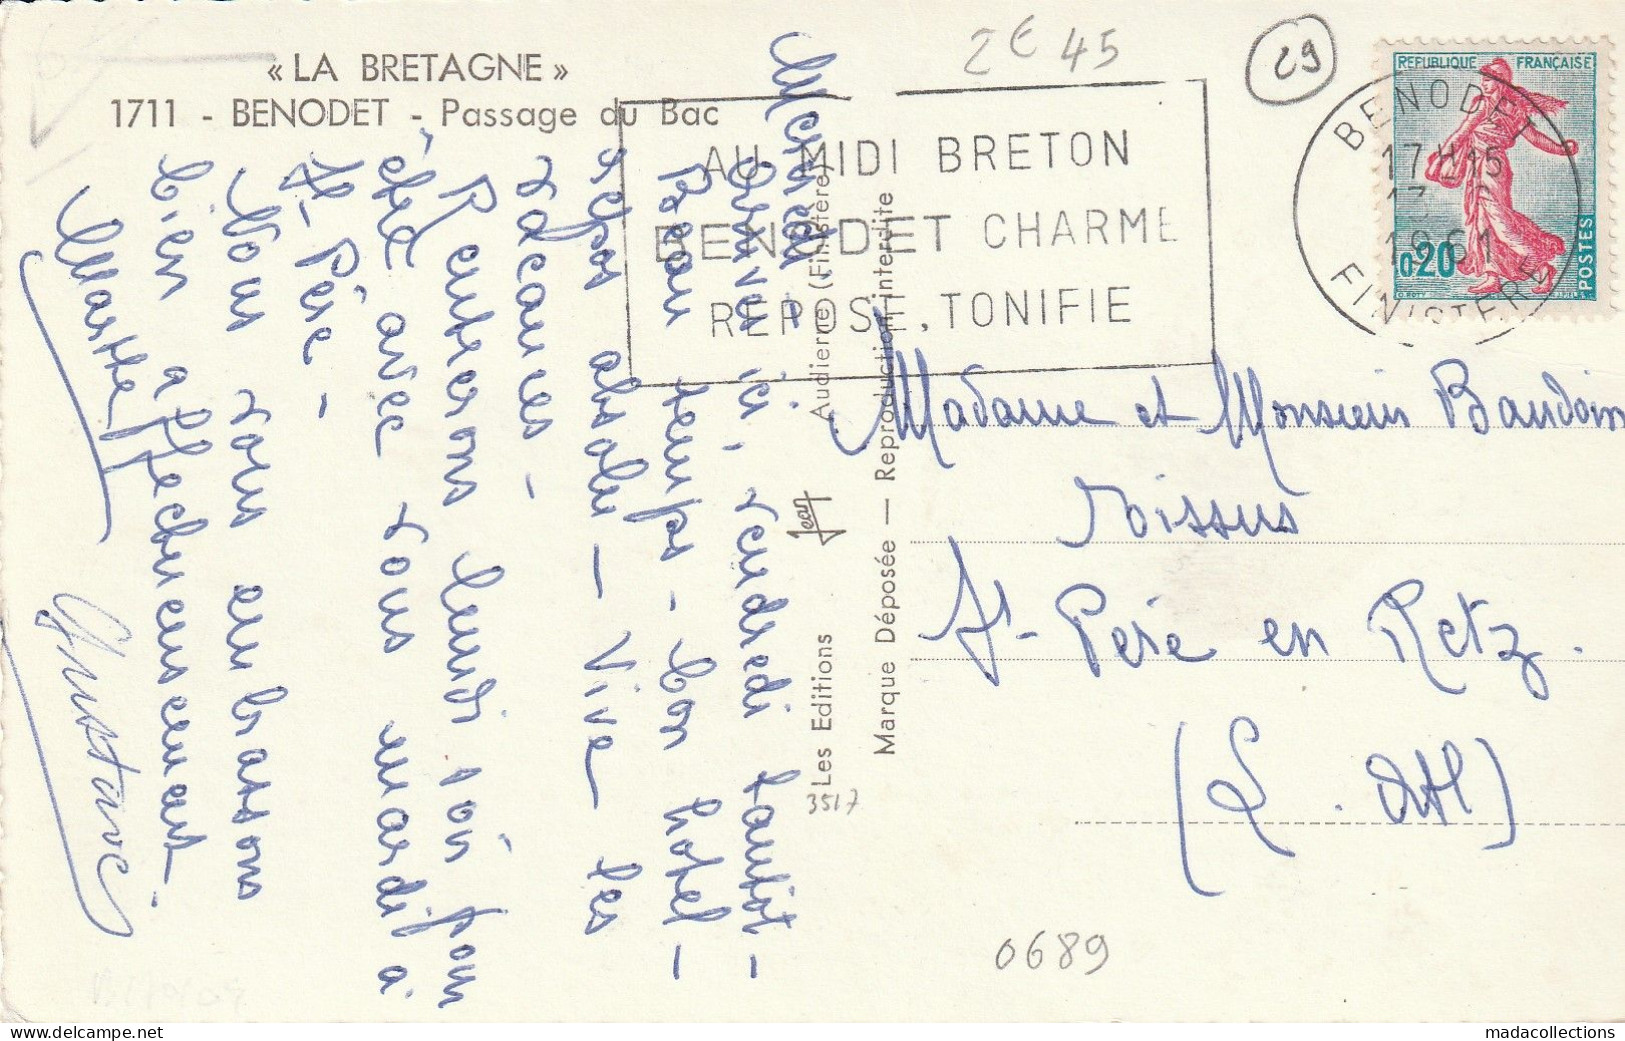 « LA BRETAGNE »
1711 - BENODET - Passage du Bac
2€45
29
REPUBLIQUE FRANÇAISE
0,20
POSTES
BENODET
17H15
1961
FINISTERE
AU MIDI BRETON
BENODET CHARME
REPOSE, TONIFIE
Mercredi
Arrivés ici, vendredi tantôt -
Beau temps - bon hôtel -
repos absolu - Vive les
vacances -
Rentrerons lundi soir pour
être avec vous mardi à
St-Père -
Nous vous embrassons
bien affectueusement.
Marthe
Gustave
Les Editions Jean Audierne (Finistère)
Marque Déposée — Reproduction interdite
3517
Madame et Monsieur Baudoin
St-Père en Retz.
(L. Atl)
0689
madacollections